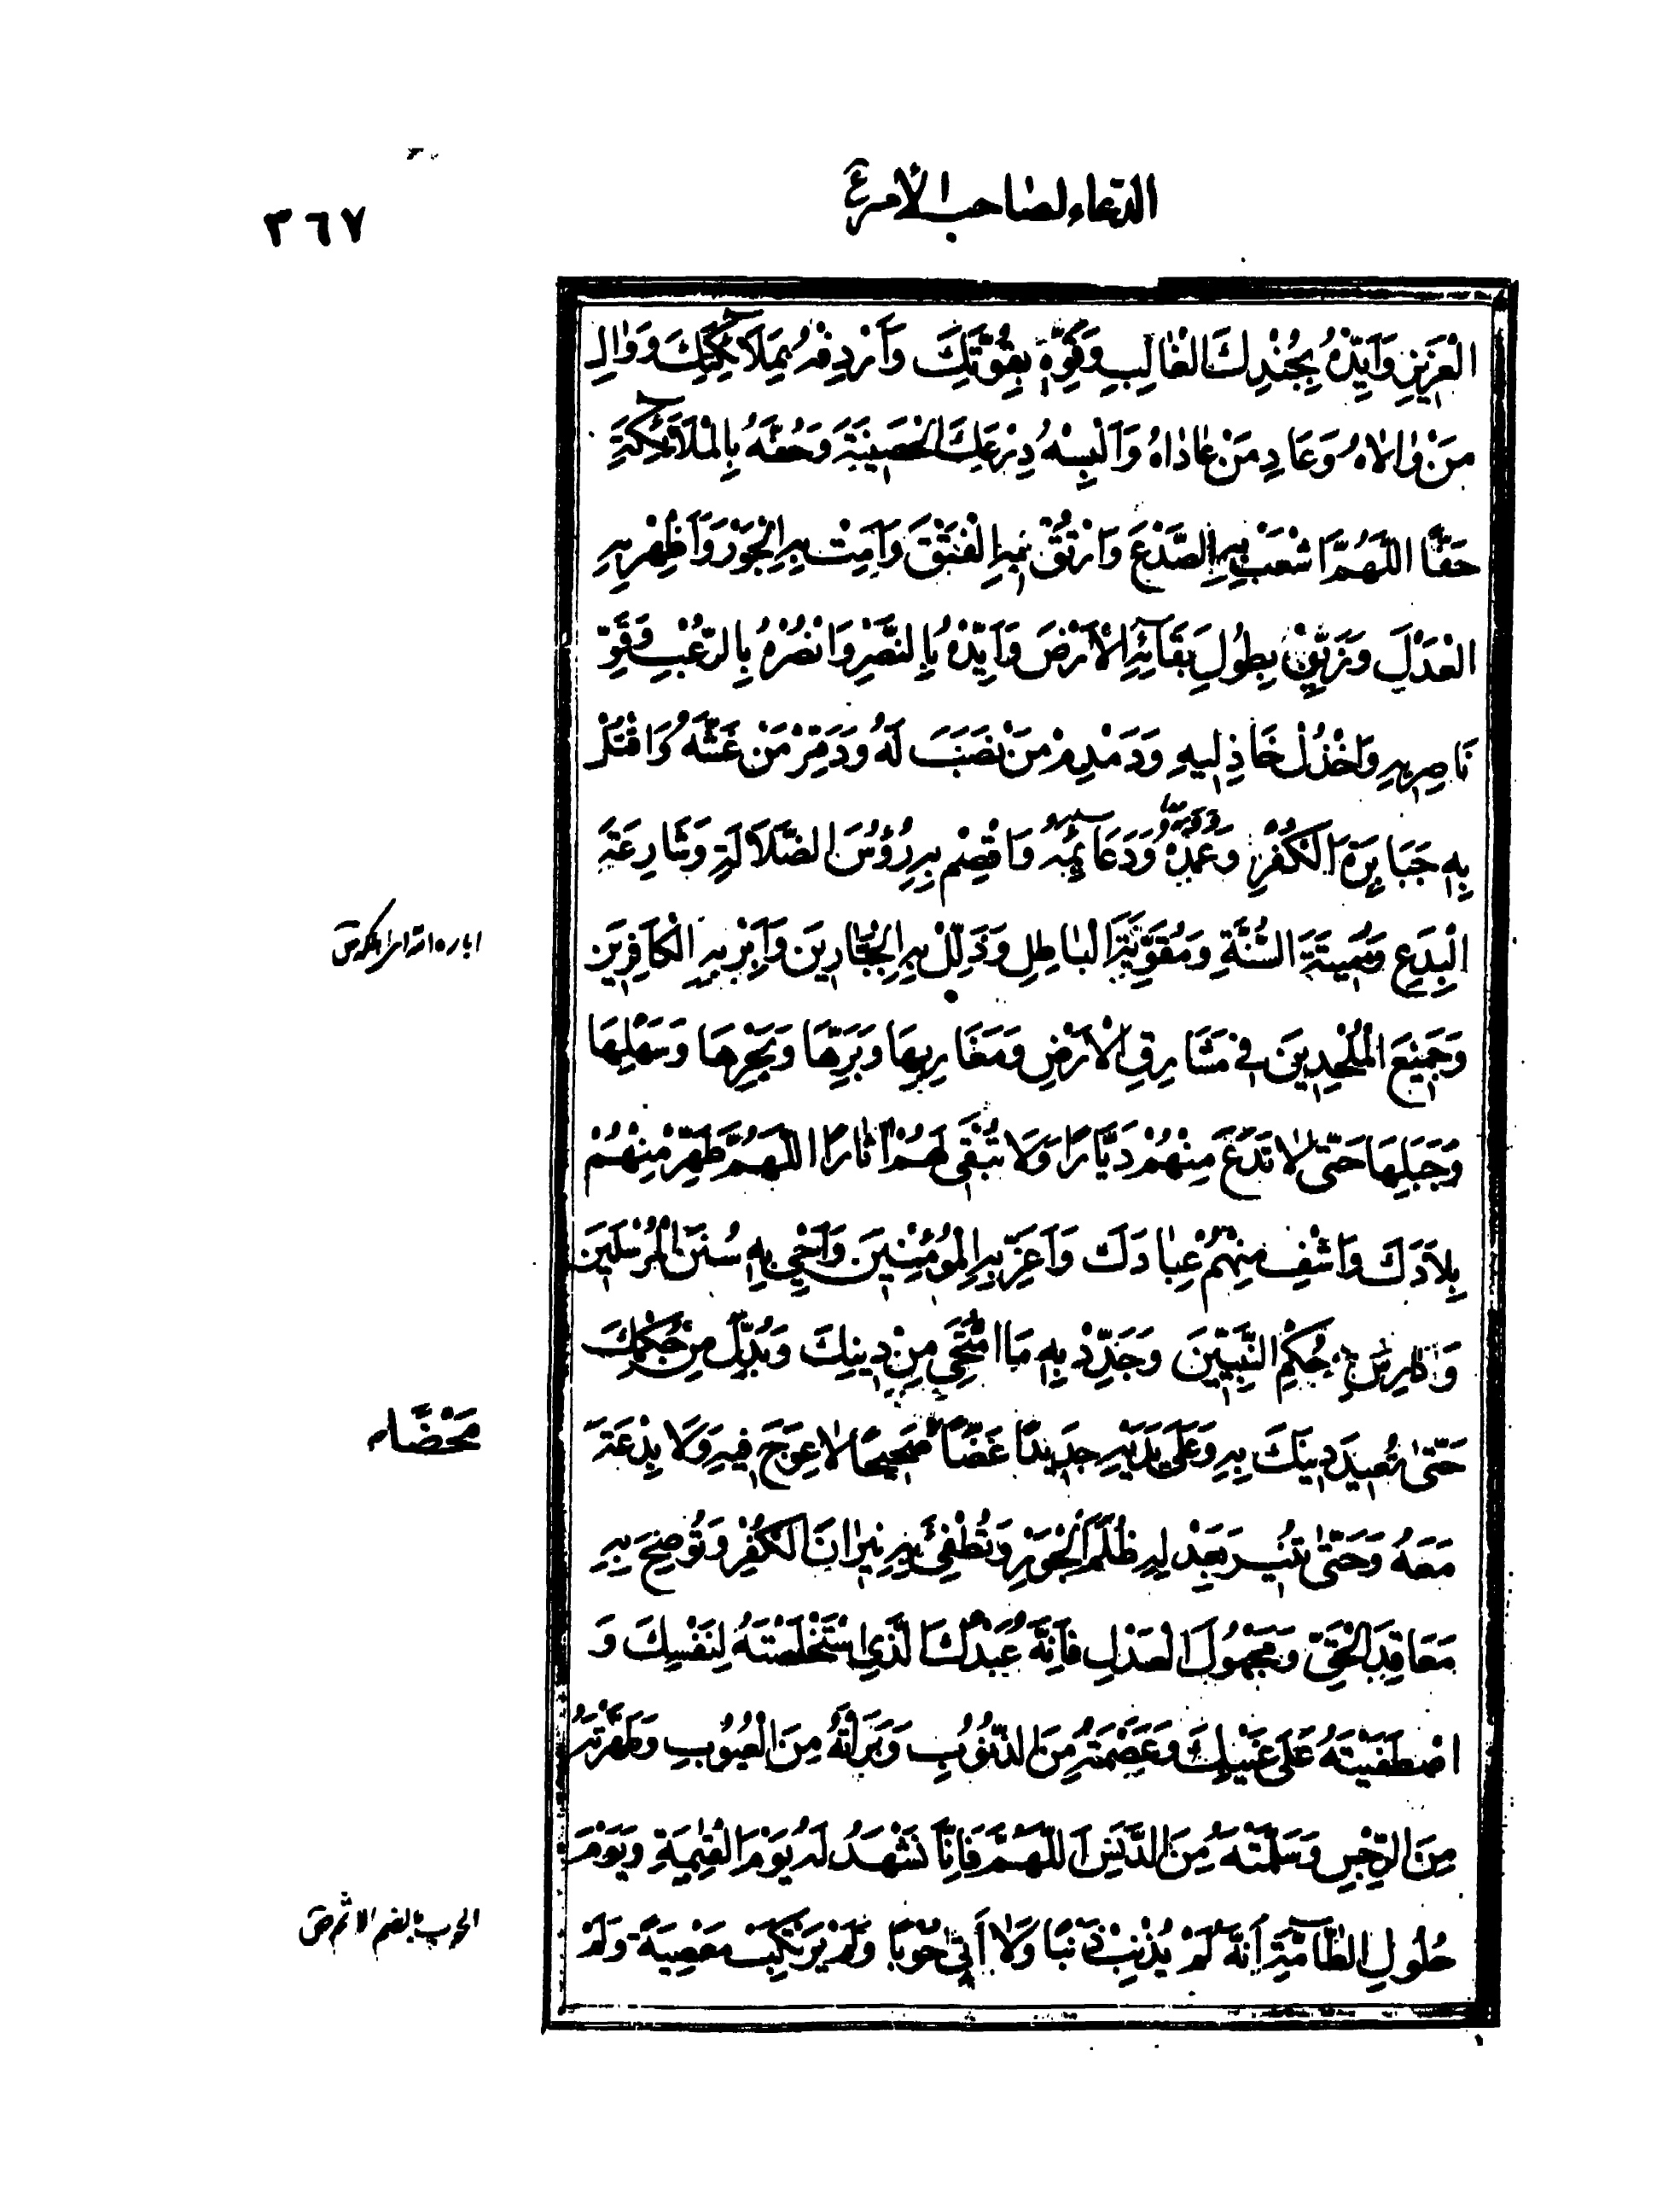 الدعاء لصاحب الأمر ع
٣٦٧
الْعَزِيزِ وَاَيِّدْهُ بِجُنْدِكَ الْغالِبِ وَقَوِّهِ بِقُوَّتِكَ وَاَرْدِفْهُ بِمَلاَئِكَتِكَ وَوَالِ
مَنْ وٰالاٰهُ وَعَادِ مَنْ عٰادٰاهُ وَاَلْبِسْهُ دِرْعَكَ الْحَصِينَةَ وَحُفَّهُ بِالْمَلاَئِكَةِ
حَفًّا اللَّهُمَّ اشْعَبْ بِهِ الصَّدْعَ وَارْتُقْ بِهِ الْفَتْقَ وَاَمِتْ بِهِ الْجَوْرَ وَاَظْهِرْ بِهِ
الْعَدْلَ وَزَيِّنْ بِطُولِ بَقَآئِهِ الْاَرْضَ وَاَيِّدْهُ بِالنَّصْرِ وَانْصُرْهُ بِالرُّعْبِ وَقَوِّ
نَاصِرِيهِ وَاخْذُلْ خَاذِلِيهِ وَدَمْدِمْ مَنْ نَصَبَ لَهُ وَدَمِّرْ مَنْ غَشَّهُ وَاقْتُلْ
بِهِ جَبَابِرَةَ الْكُفْرِ وَعُمُدَهُ وَدَعَائِمَهُ وَاقْصِمْ بِهِ رُؤُسَ الضَّلاَلَةِ وَشَارِعَةَ
الْبِدَعِ وَمُمِيتَةَ السُّنَّةِ وَمُقَوِّيَةَ الْبٰاطِلِ وَذَلِّلْ بِهِ الْجَبّٰارِينَ وَاَبِرْ بِهِ الْكَافِرِينَ
وَجَمِيعَ الْمُلْحِدِينَ فِي مَشَارِقِ الْاَرْضِ وَمَغَارِبِهَا وَبَرِّهَا وَبَحْرِهَا وَسَهْلِهَا
وَجَبَلِهَا حَتّىٰ لاٰ تَدَعَ مِنْهُمْ دَيَّارًا وَلَا تُبْقَي لَهُمْ اٰثَارًا اللَّهُمَّ طَهِّرْ مِنْهُمْ
بِلاَدَكَ وَاشْفِ مِنْهُمْ عِبٰادَكَ وَاَعِزَّ بِهِ الْمُؤْمِنِينَ وَاَحْيِ بِهِ سُنَنَ الْمُرْسَلِينَ
وَدٰارِسَ حُكْمِ النَّبِيِّينَ وَجَدِّدْ بِهِ مَا امْتَحَي مِنْ دِينِكَ وَبُدِّلَ مِنْ حُكْمِكَ
حَتّىٰ تُعِيدَ دِينَكَ بِهِ وَعَلَى يَدَيْهِ جَدِيدًا غَضًّا صَحِيحًا لاٰ عِوَجَ فِيهِ وَلَا بِدْعَةَ
مَحْضًا
مَعَهُ وَحَتّىٰ تُنِيرَ بِعَدْلِهِ ظُلَمَ الْجَوْرِ وَتُطْفِئَ بِهِ نِيرٰانَ الْكُفْرِ وَتُوضِحَ بِهِ
مَعَاقِدَ الْحَقِّ وَمَجْهُولَ الْعَدْلِ فَاِنَّهُ عَبْدُكَ الَّذِي اسْتَخْلَصْتَهُ لِنَفْسِكَ وَ
اصْطَفَيْتَهُ عَلَى غَيْبِكَ وَعَصَمْتَهُ مِنَ الذُّنُوبِ وَبَرَّأْتَهُ مِنَ الْعُيُوبِ وَطَهَّرْتَهُ
مِنَ الرِّجْسِ وَسَلَّمْتَهُ مِنَ الدَّنَسِ اَللَّهُمَّ فَاِنَّا نَشْهَدُ لَهُ يَوْمَ الْقِيٰمَةِ وَيَوْمَ
حُلُولِ الطَّآمَّةِ اَنَّهُ لَمْ يُذْنِبْ ذَنْبًا وَلاٰ اَتٰى حُوبًا وَلَمْ يَرْتَكِبْ مَعْصِيَةً وَلَمْ
الحوب بالضم الاثم ص